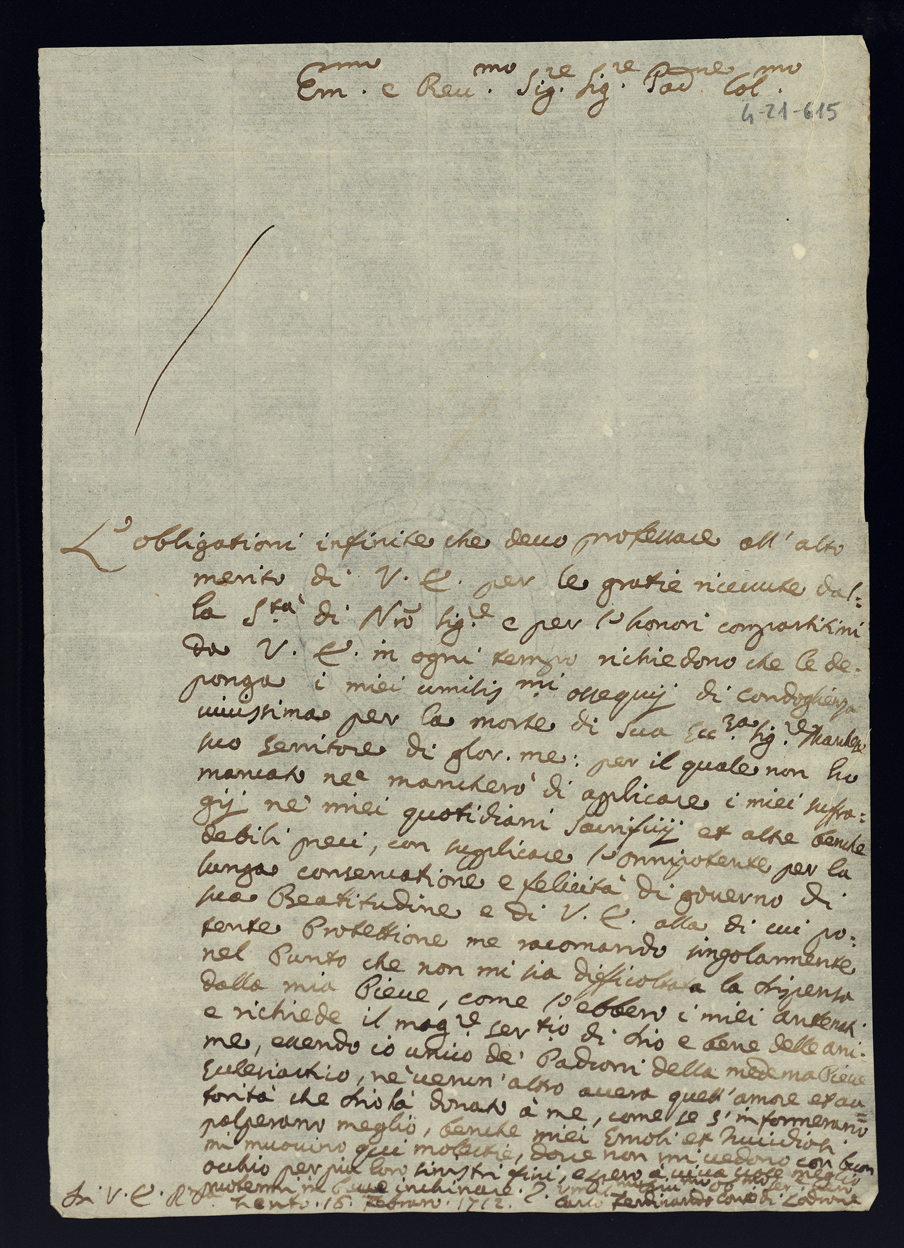 Em.mo e Reu.mo Sig.re Sig.re Pad.ne Col.mo
4-21-615
L'obligationi infinite che deuo professare all'alto
merito di V. E. per le gratie riceuute dal=
la S.tà di Nrõ Sig.e e per l'honori compartitimi
da V. E. in ogni tempo richiedono che le de-
ponga i miei umilis.mi ossequij di condoglienza
uiuissima per la morte di Sua Ecc.za Sig.e Marchese
suo seruitore di glor. me: per il quale non ho
mancato ne mancherò di applicare i miei suffra=
gij ne' miei quotidiani Sacrifitij et altre benche
debili preci, con supplicare l'onnipotente per la
lunga conseruatione e felicità di gouerno di
sua Beatitudine e di V. E. alla di cui po=
tente Protettione me racomando singolarmente
nel Punto che non mi sia difficoltata la dispensa
dalla mia Pieue, come l'ebbero i miei Antenati
e richiede il mag.re ser.tio di Dio e bene delle ani-
me, essendo io unico de' Padroni della medema Pieue
Eclesiastico, ne uerun'altro auera quell'amore et au=
torità che Dio la donato à me, come se s'informerano
palperano meglio, benche miei Emoli et Inuidiosi
mi muouino qui molestie, doue non mi uedono con buon
ochio per piu loro sinistri fini, e spero à uiua uoce meglio
Di V. E. R.ma
Trento. 16. Febraro. 1712. Carlo Ferdinando Conte di Lodrone